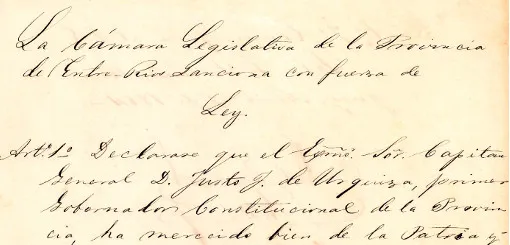 La Cámara Legislativa de la Provincia
de Entre-Rios sanciona con fuerza de
Ley.
Art.º 1º Declarase que el Exmô. Sôr. Capitan
General D. Justo J. de Urquiza, primer
Gobernador Constitucional de la Provin-
cia, ha merecido bien de la Patria y